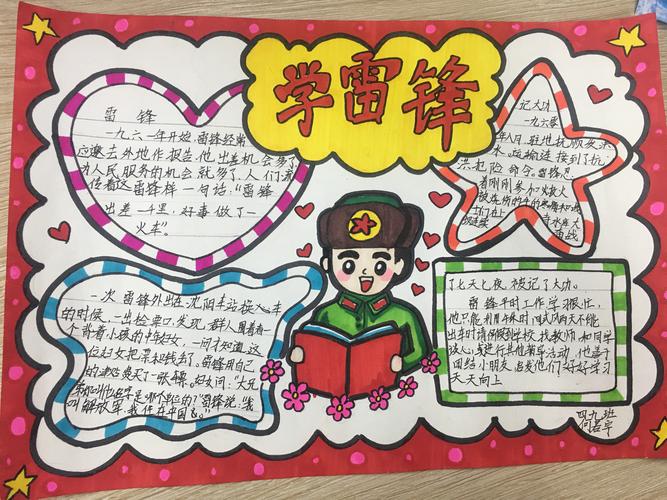 学雷锋
雷 锋
一九六一年开始,雷锋经常
应邀去外地作报告,他出差机会多了
为人民服务的机会就多了,人们流
传着这雷锋样一句话:“雷锋
出差一千里,好事做了一
火车”。
记大功
一九六零
年八月,驻地抚顺发洪
水,运输连接到了抗
洪抢险命令。雷锋忍
着刚刚参加救火
被
在
了七天七夜,被记了大功。
雷锋平时工作学很忙,
他只能利用午休时间或风雨天不能
出车时请假到学校找教师和同学
谈心,或进行其他辅导活动,他善于
团结小朋友,启发他们好好学习
天天向上
一次雷锋外出在沈阳车站换火车
的时候,一出检票口,发现一群人围着一
个背着小孩的中年妇女,一问才知道,这
位妇女把票和钱丢了,雷锋用自己
的津贴费买了一张
叫解放军,我住在中国。”
四九班
何若宇